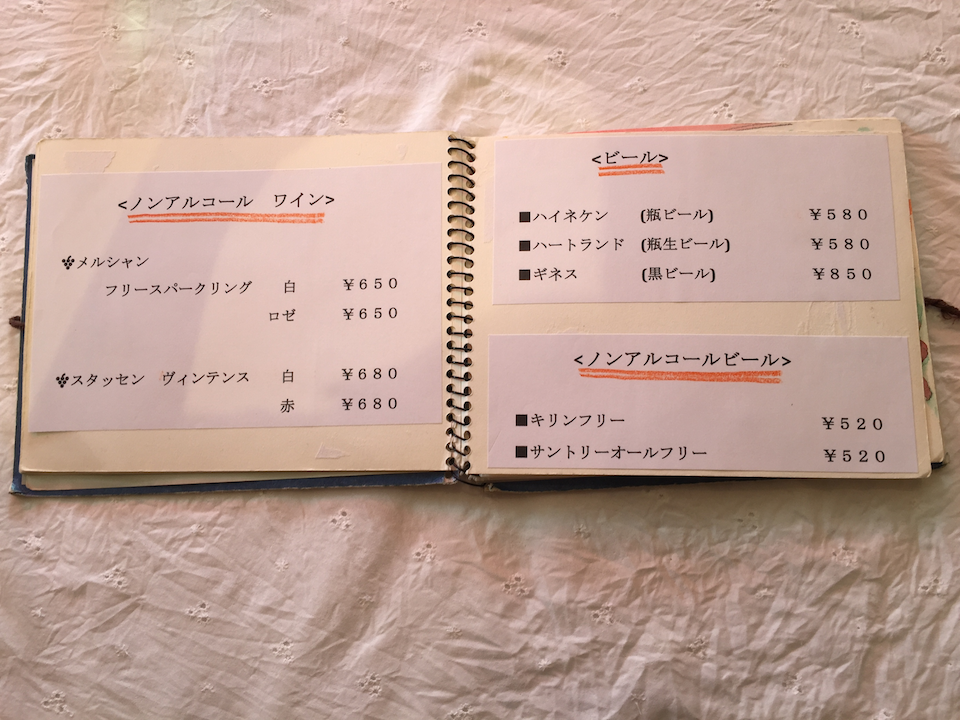 <ノンアルコール　ワイン>
メルシャン
フリースパークリング　白　￥６５０
ロゼ　￥６５０
スタッセン　ヴィンテンス　白　￥６８０
赤　￥６８０
<ビール>
■ハイネケン　(瓶ビール)　￥５８０
■ハートランド　(瓶生ビール)　￥５８０
■ギネス　(黒ビール)　￥８５０
<ノンアルコールビール>
■キリンフリー　￥５２０
■サントリーオールフリー　￥５２０